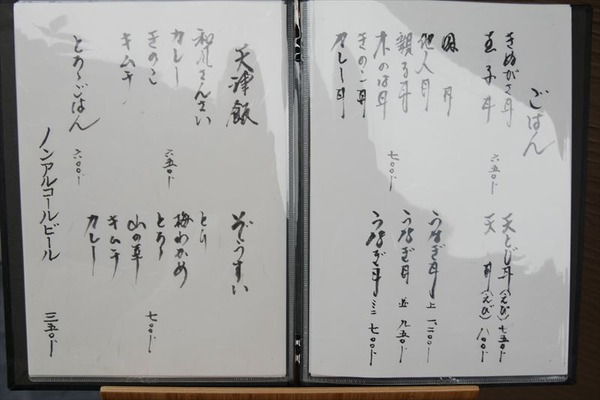 ごはん
きぬがさ丼
玉子丼
六五〇円
肉丼
他人丼
親子丼
木の葉丼
きのこ丼
カレー丼
七〇〇円
天とじ丼(えび) 七五〇円
天丼(えび) 八〇〇円
うなぎ丼 上 一、二〇〇円
うなぎ丼 並 九五〇円
うなぎ丼 ミニ 七〇〇円
天津飯
和風さんさい
カレー
きのこ
キムチ
六五〇円
とろろごはん 六〇〇円
ぞうすい
とり
梅わかめ
とろろ
山の幸
キムチ
カレー
七〇〇円
ノンアルコールビール 三五〇円